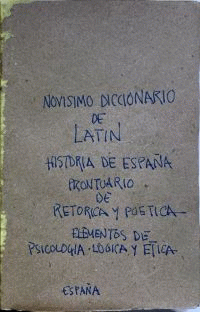 NOVISIMO DICCIONARIO
DE
LATIN
HISTORIA DE ESPAÑA
PRONTUARIO
DE
RETORICA Y POETICA
ELEMENTOS DE
PSICOLOGIA-LOGICA Y ETICA
ESPAÑA